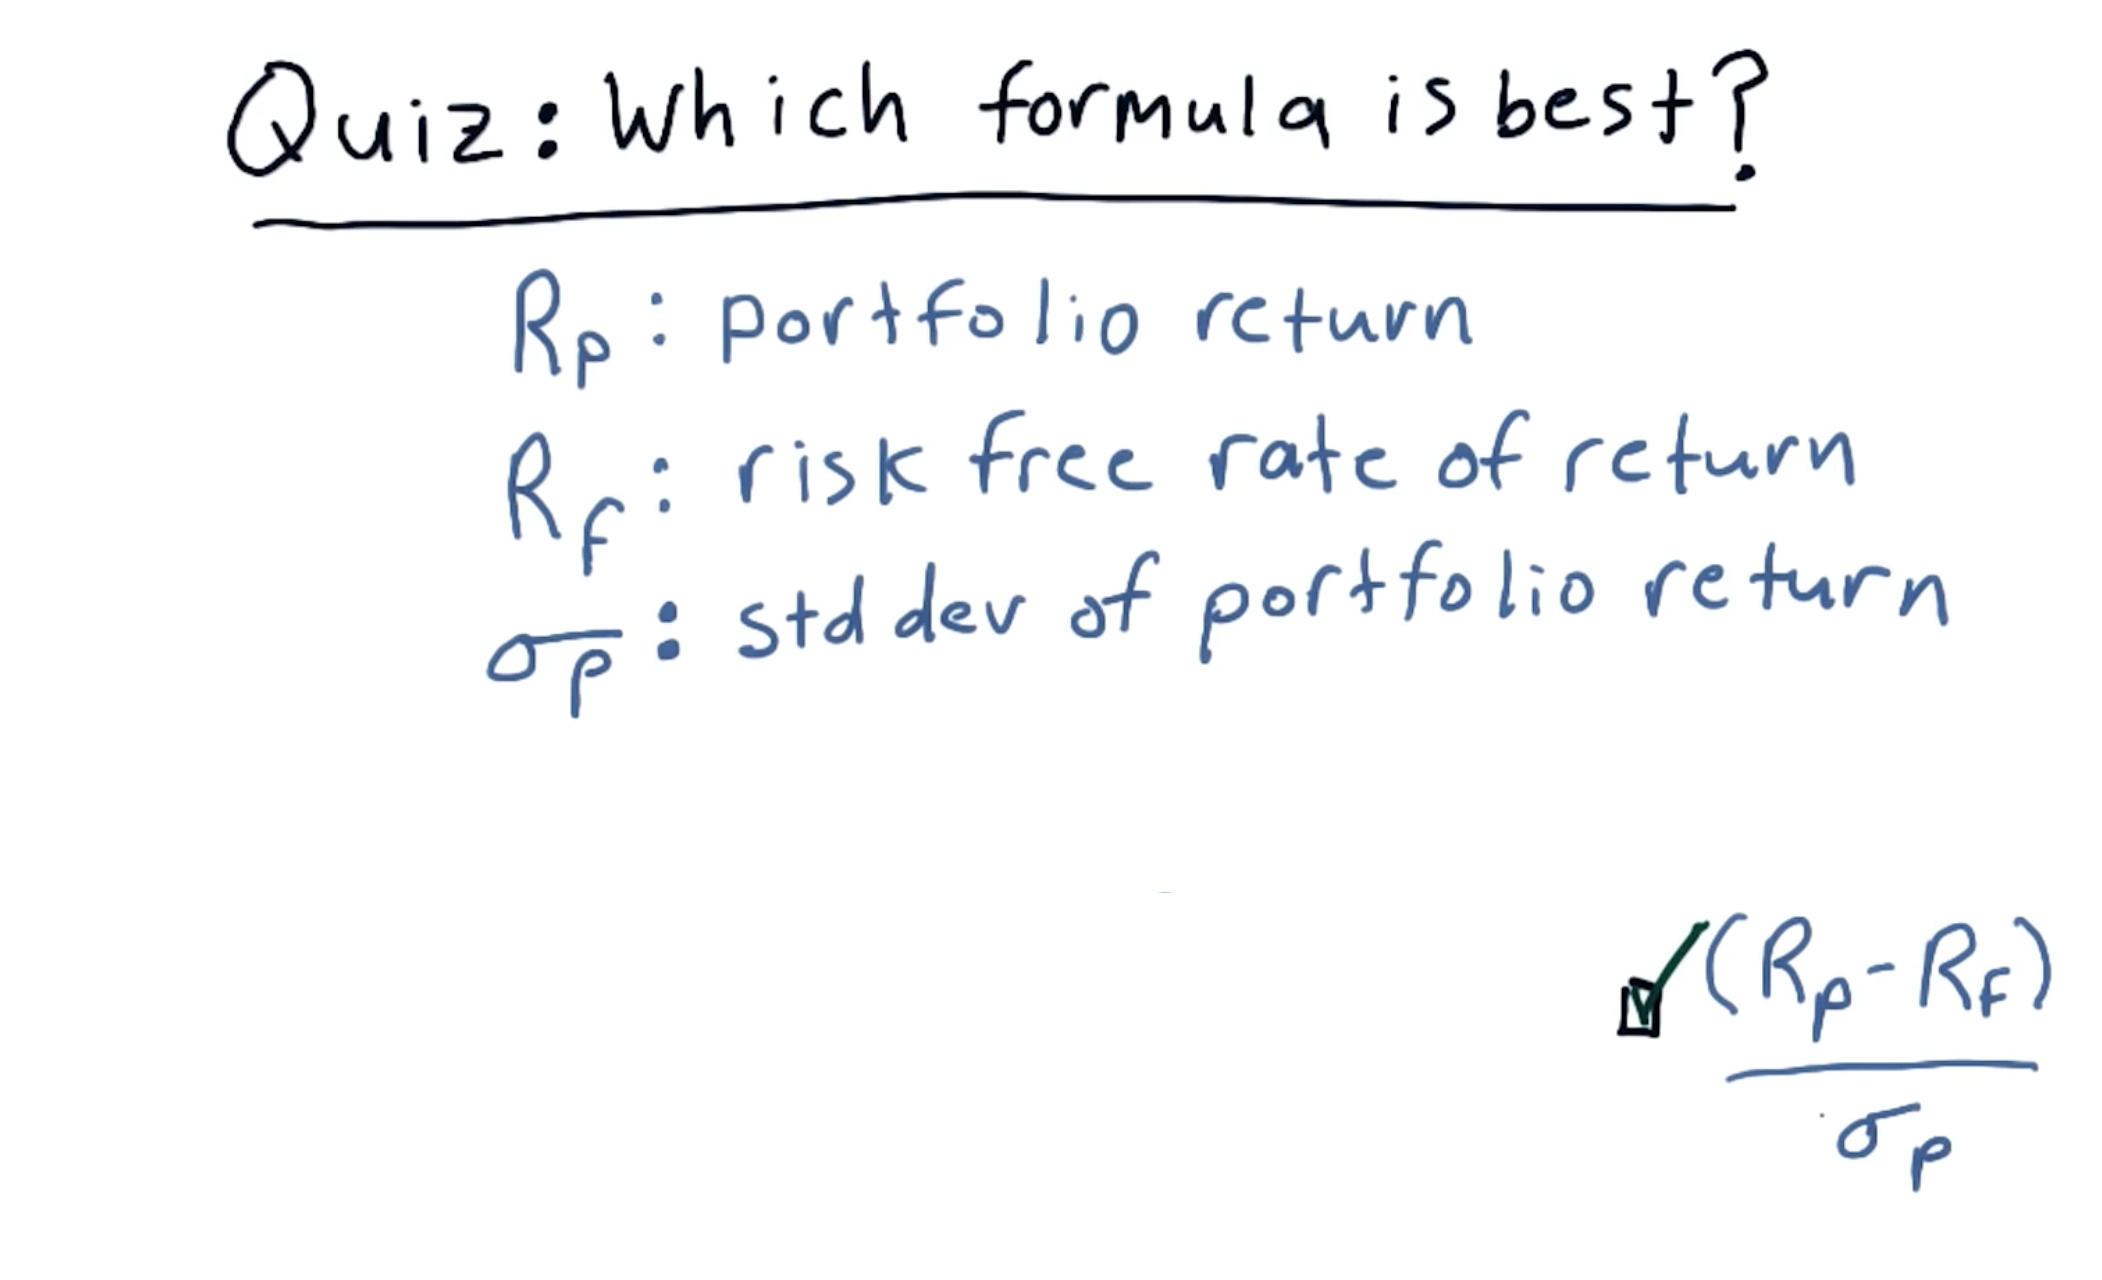 Quiz: Which formula is best?
Rp: portfolio return
Rf: risk free rate of return
σp: std dev of portfolio return
(Rp-Rf)
σp